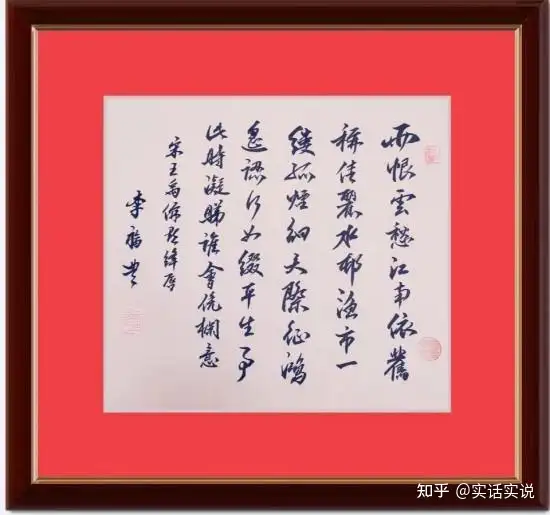 雨恨雲愁江南依舊
稱佳麗水邨漁市一
縷孤煙細天際征鴻
遙認行如綴平生事
此時凝睇誰會凭欄意
宋王禹偁點絳唇
李福
知乎 @实话实说